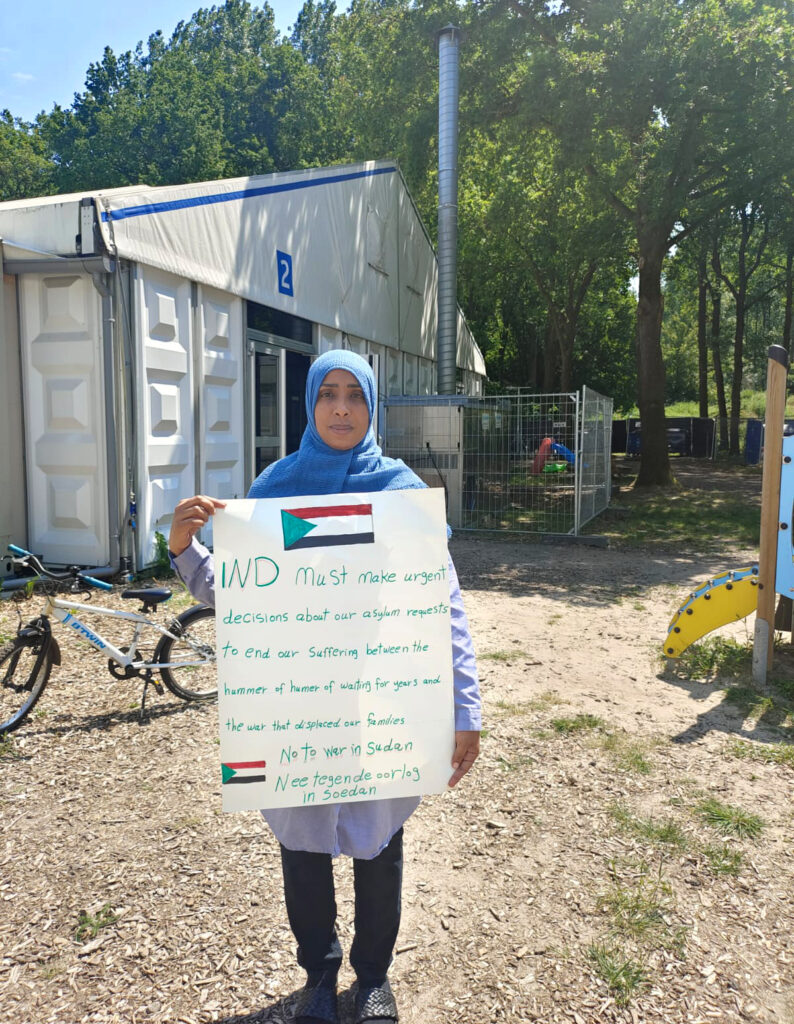 2
IND Must make urgent
decisions about our asylum requests
to end our suffering between the
hummer of humer of waiting for years and
the war that displaced our families
No to war in Sudan
Nee tegende oorlog
in Soedan